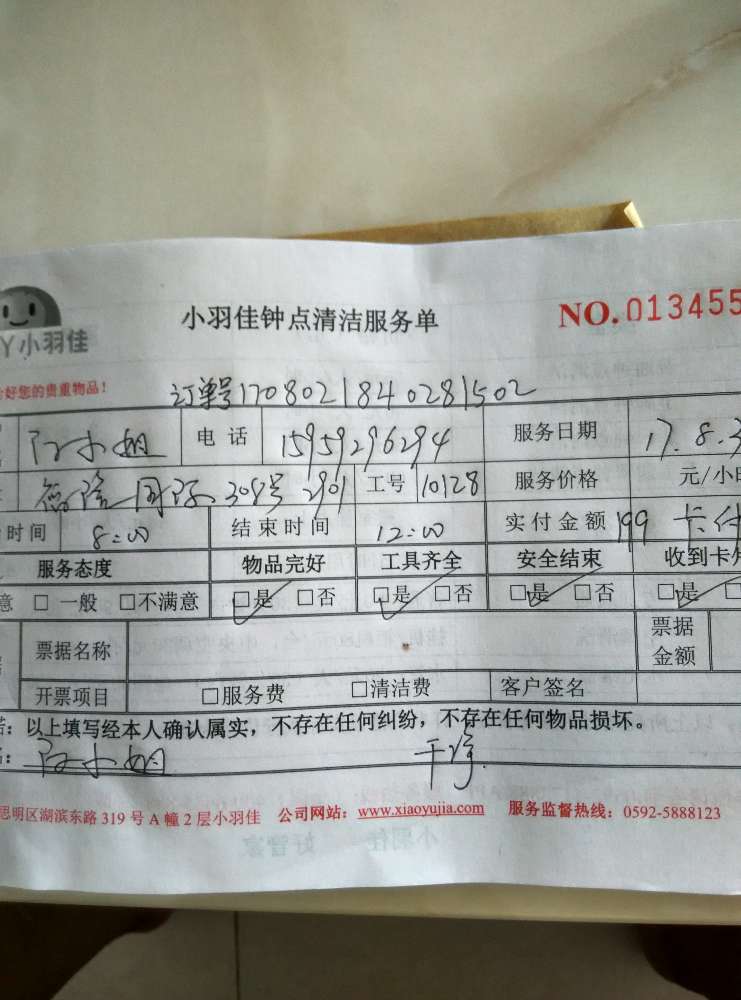 小羽佳钟点清洁服务单
NO.013455
Y小羽佳
好您的贵重物品!
订单号1708021840281502
小姐 电话 15959296294 服务日期 17.8.3
国际308号2901 工号 10128 服务价格 元/小时
时间 8:00 结束时间 12:00 实付金额 199 卡付
服务态度 物品完好 工具齐全 安全结束 收到卡
意 □一般 □不满意 □是 □否 □是 □否 □是 □否 □是
票据名称 票据金额
开票项目 □服务费 □清洁费 客户签名
诺:以上填写经本人确认属实,不存在任何纠纷,不存在任何物品损坏。
: 小姐 干净
思明区湖滨东路 319 号 A 幢 2 层小羽佳 公司网站:www.xiaoyujia.com 服务监督热线:0592-5888123